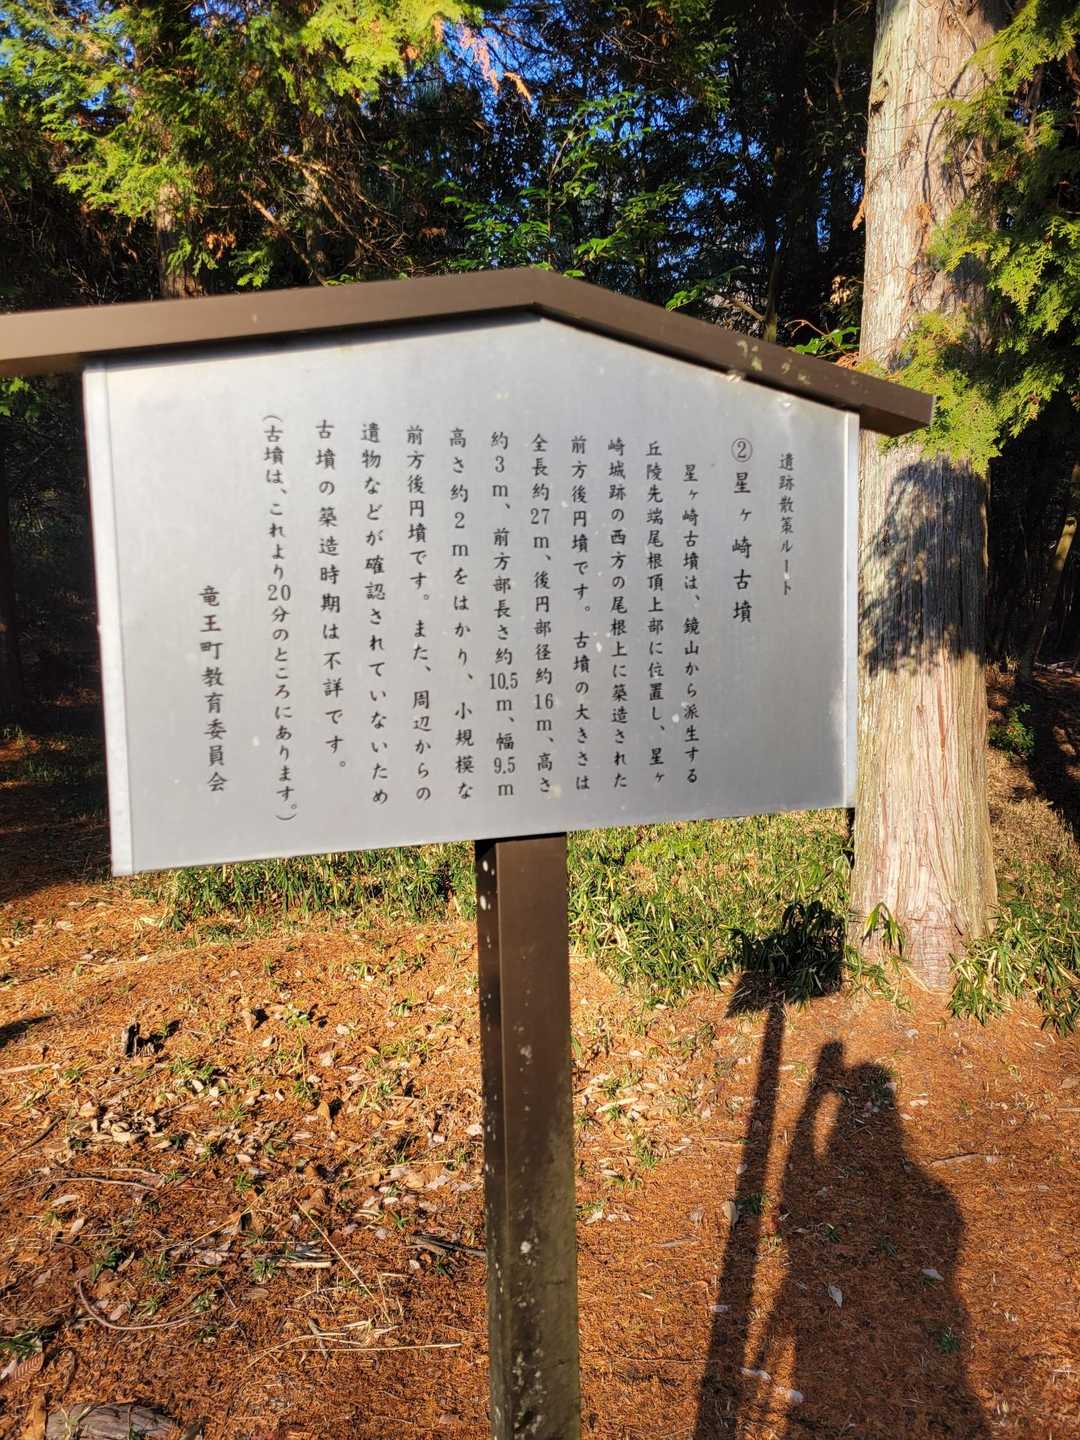 遺跡散策ルート
②星ヶ崎古墳
星ヶ崎古墳は、鏡山から派生する
丘陵先端尾根頂上部に位置し、星ヶ
崎城跡の西方の尾根上に築造された
前方後円墳です。古墳の大きさは
全長約27m、後円部径約16m、高さ
約3m、前方部長さ約10.5m、幅9.5m
高さ約2mをはかり、小規模な
前方後円墳です。また、周辺からの
遺物などが確認されていないため
古墳の築造時期は不詳です。
(古墳は、これより20分のところにあります。)
竜王町教育委員会